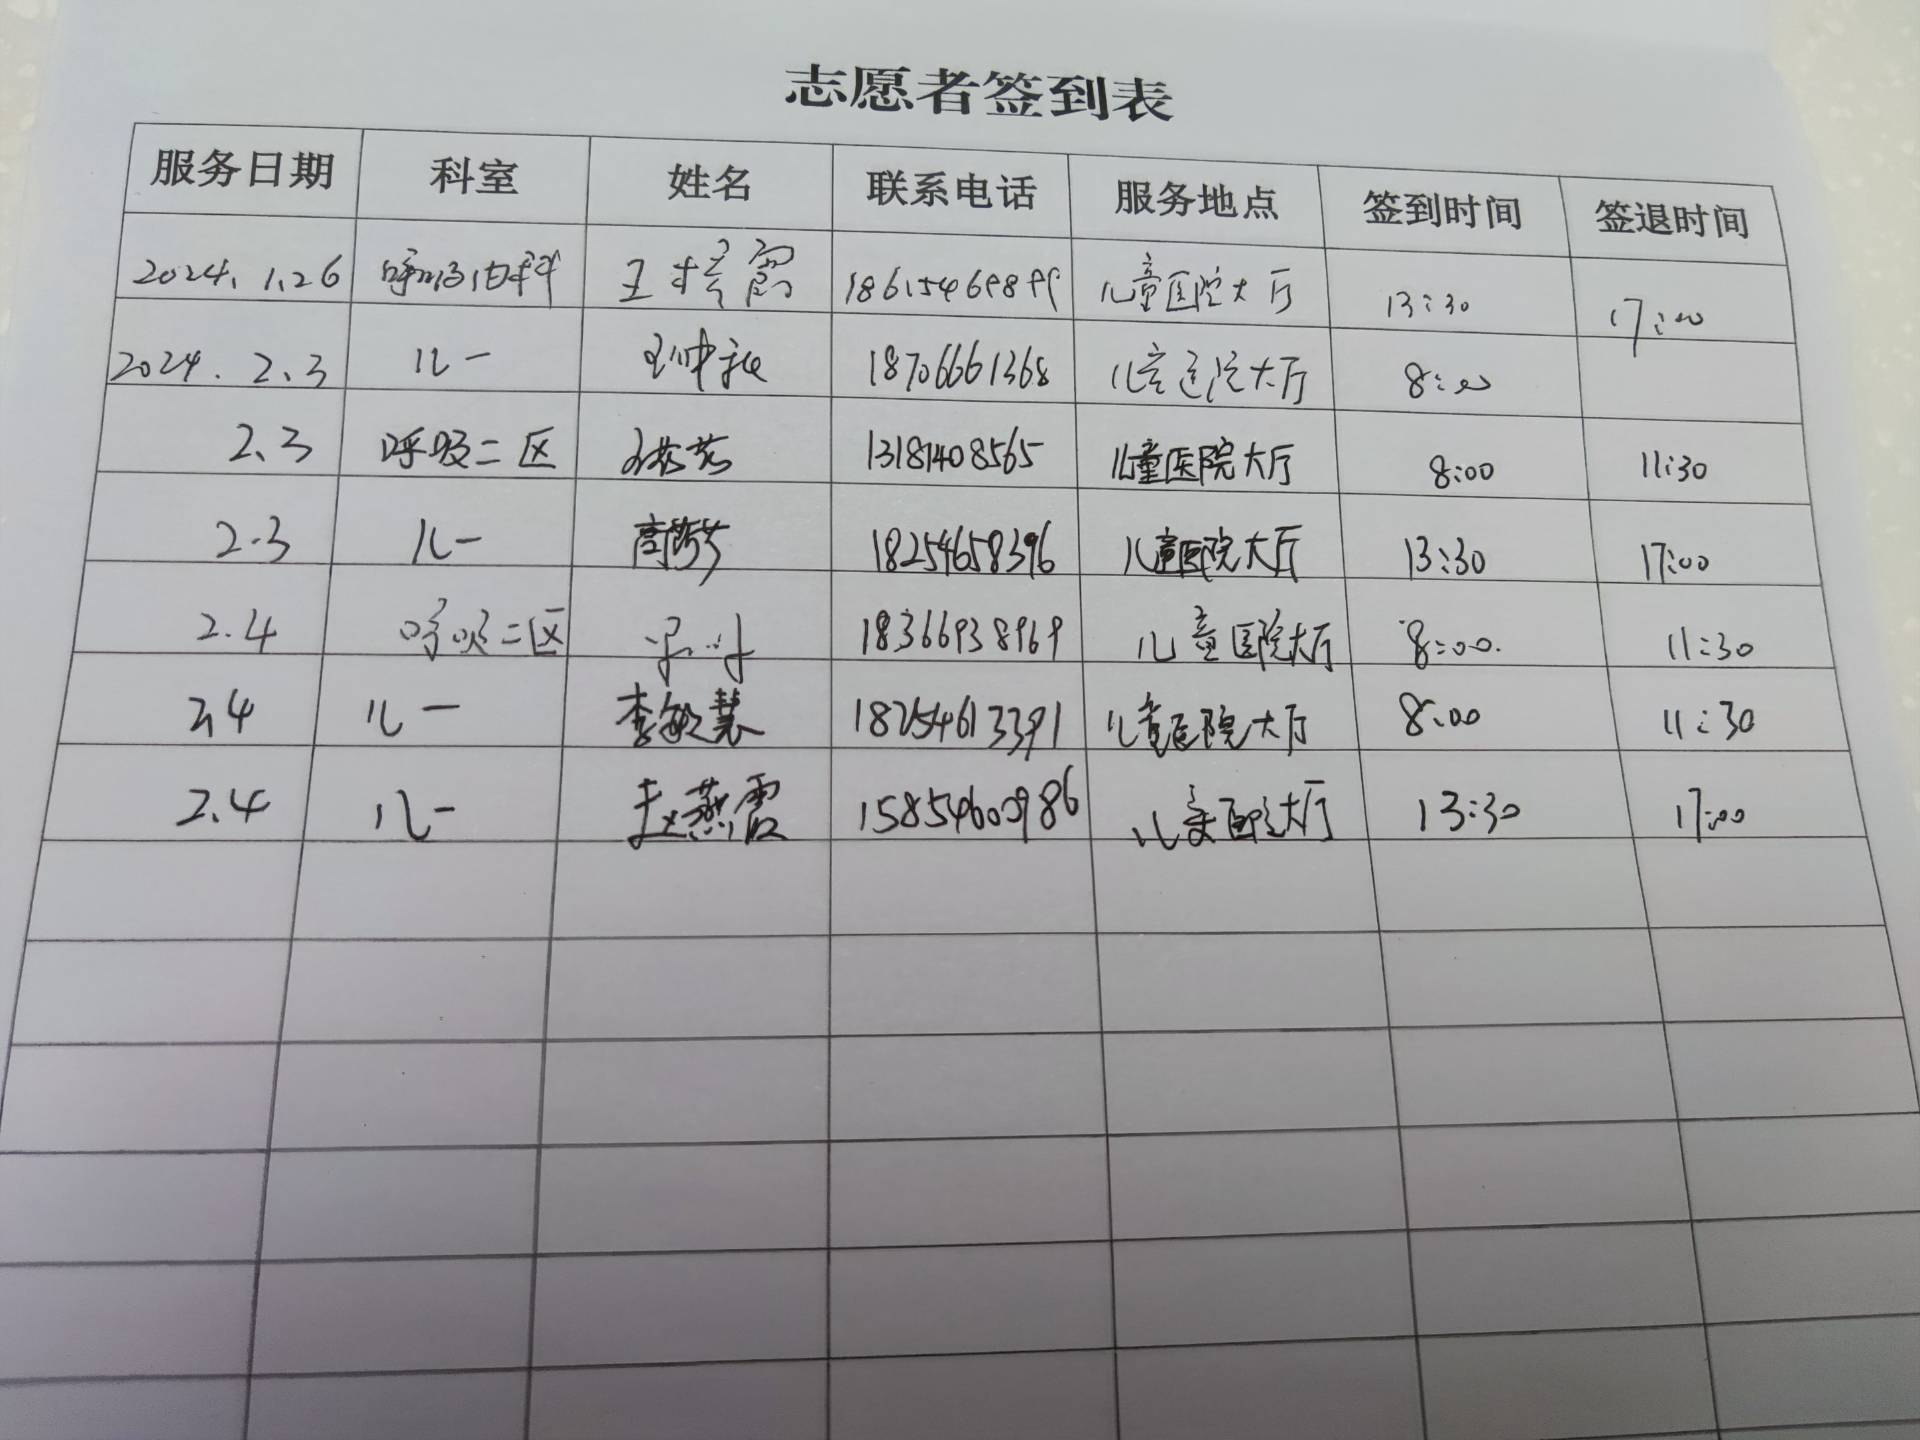 志愿者签到表
服务日期 科室 姓名 联系电话 服务地点 签到时间 签退时间
2024.1.26 呼吸内科 王 儿童医院大厅 13:30 17:00
2024.2.3 儿一 18706661368 儿童医院大厅 8:00
2.3 呼吸二区 13181408565 儿童医院大厅 8:00 11:30
2.3 儿一 18254658396 儿童医院大厅 13:30 17:00
2.4 呼吸二区 18366938969 儿童医院大厅 8:00 11:30
2.4 儿一 李敏慧 18254613391 儿童医院大厅 8:00 11:30
2.4 儿一 赵燕霞 15854600986 儿童医院大厅 13:30 17:00